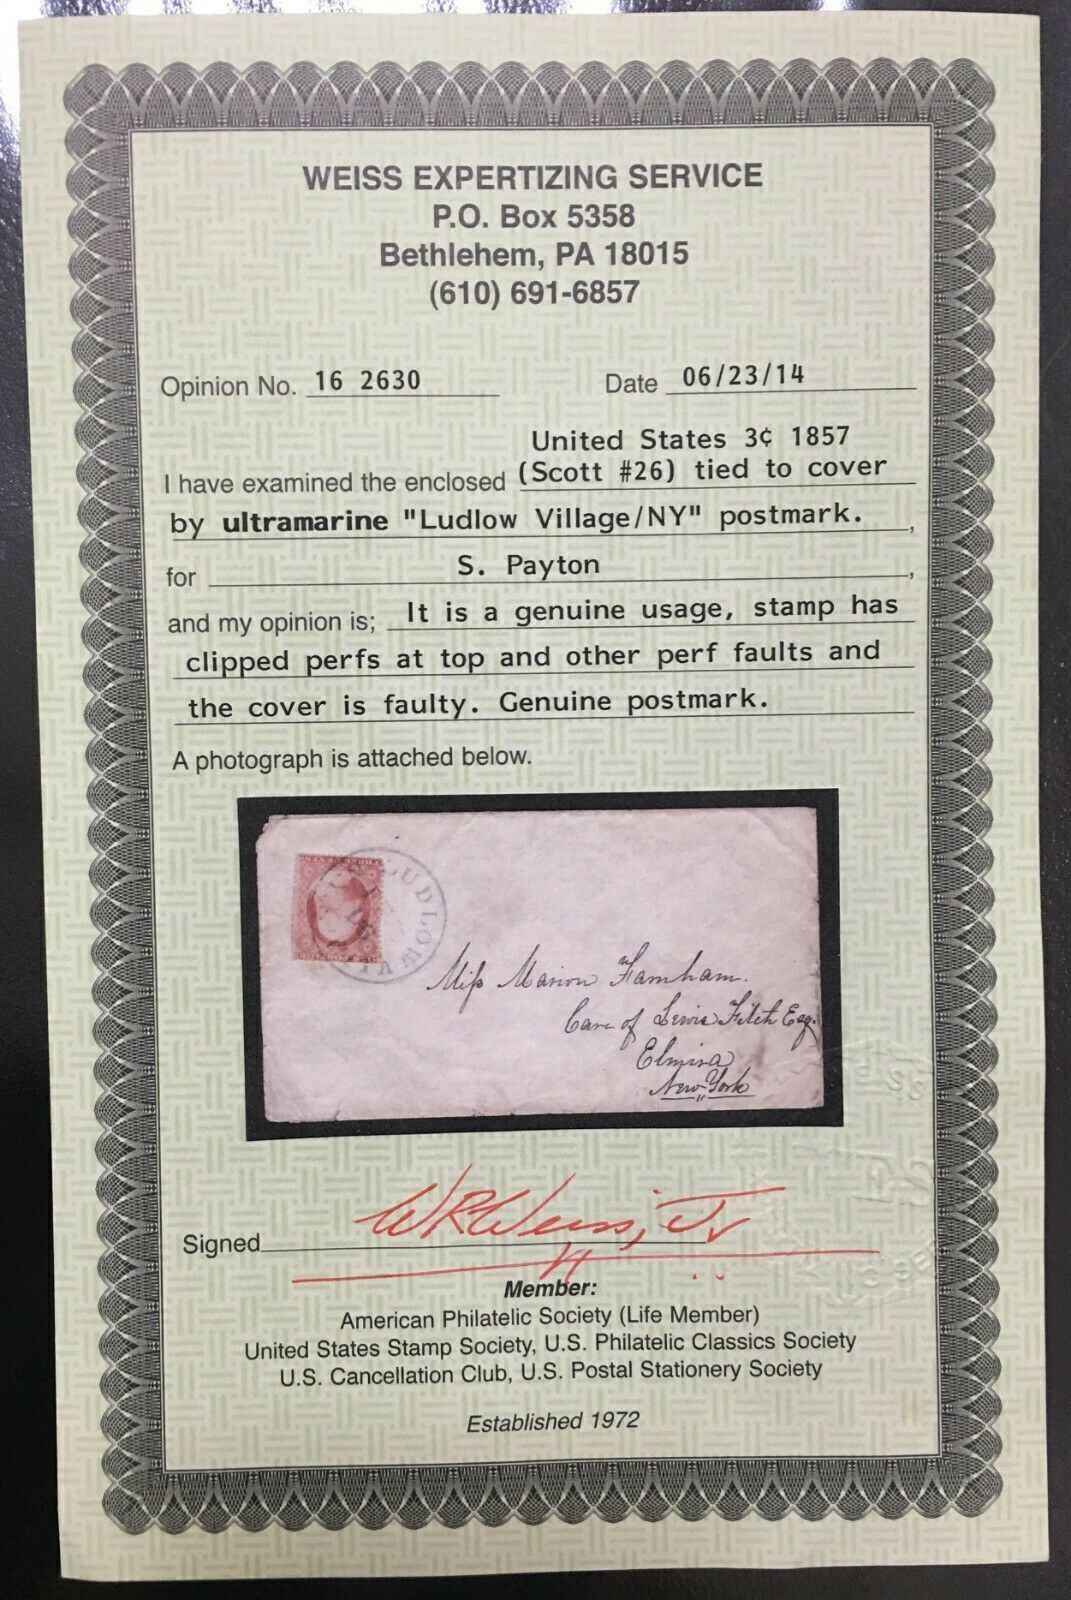 WEISS EXPERTIZING SERVICE
P.O. Box 5358
Bethlehem, PA 18015
(610) 691-6857
Opinion No. 16 2630 Date 06/23/14
United States 3¢ 1857
I have examined the enclosed (Scott #26) tied to cover
by ultramarine "Ludlow Village/NY" postmark. ,
for S. Payton ,
and my opinion is; It is a genuine usage, stamp has
clipped perfs at top and other perf faults and
the cover is faulty. Genuine postmark.
A photograph is attached below.
LUDLOW VI
Miss Marion Farnham.
Care of Lewis Fitch Esq.
Elmira
New York
Signed W R Weiss, Jr
Member:
American Philatelic Society (Life Member)
United States Stamp Society, U.S. Philatelic Classics Society
U.S. Cancellation Club, U.S. Postal Stationery Society
Established 1972